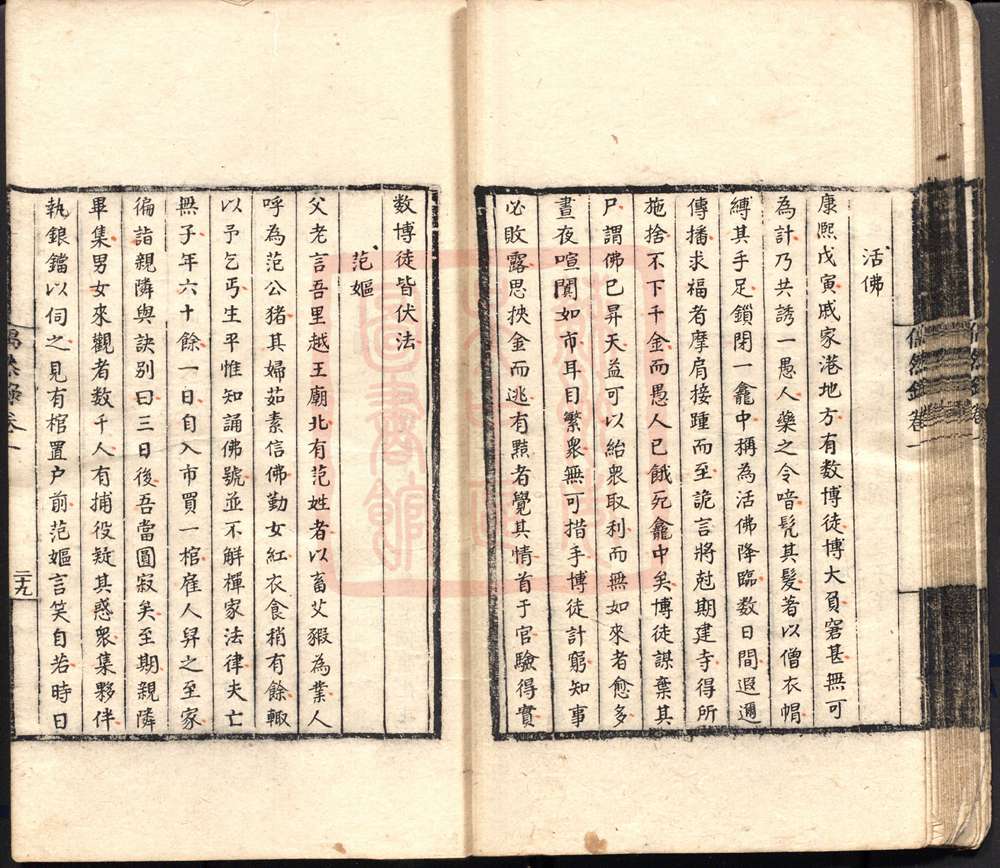 活佛
康熙戊寅戚家港地方有数博徒博大負窘甚無可
為計乃共誘一愚人藥之令喑髡其髮著以僧衣帽
縛其手足鎖閉一龕中稱為活佛降臨数日間遐邇
傳播求福者摩肩接踵而至詭言將尅期建寺得所
施捨不下千金而愚人已餓死龕中矣博徒謀棄其
尸謂佛已昇天益可以紿衆取利而無如來者愈多
晝夜喧闐如市耳目繁衆無可措手博徒計窮知事
必敗露思挾金而逃有黠者覺其情首于官驗得實
数博徒皆伏法
范嫗
父老言吾里越王廟北有范姓者以畜父豭為業人
呼為范公猪其婦茹素信佛勤女紅衣食稍有餘輙
以予乞丐生平惟知誦佛號並不解禪家法律夫亡
無子年六十餘一日自入市買一棺雇人舁之至家
徧詣親隣與訣别曰三日後吾當圓寂矣至期親隣
畢集男女來觀者数千人有捕役疑其惑衆集夥伴
執鋃鐺以伺之見有棺置户前范嫗言笑自若時日
偶然錄 卷一
二十九